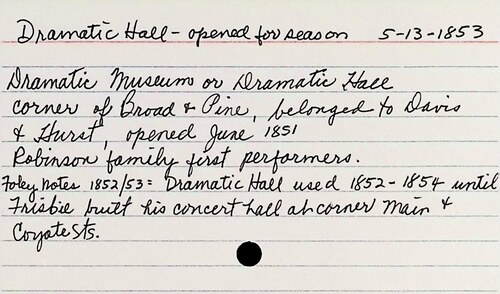 Dramatic Hall - opened for season 5-13-1853
Dramatic Museum or Dramatic Hall
corner of Broad & Pine, belonged to Davis
& Hurst, opened June 1851
Robinson family first performers.
Foley Notes 1852/53 = Dramatic Hall used 1852-1854 until
Frisbie built his concert hall at corner Main &
Coyote Sts.